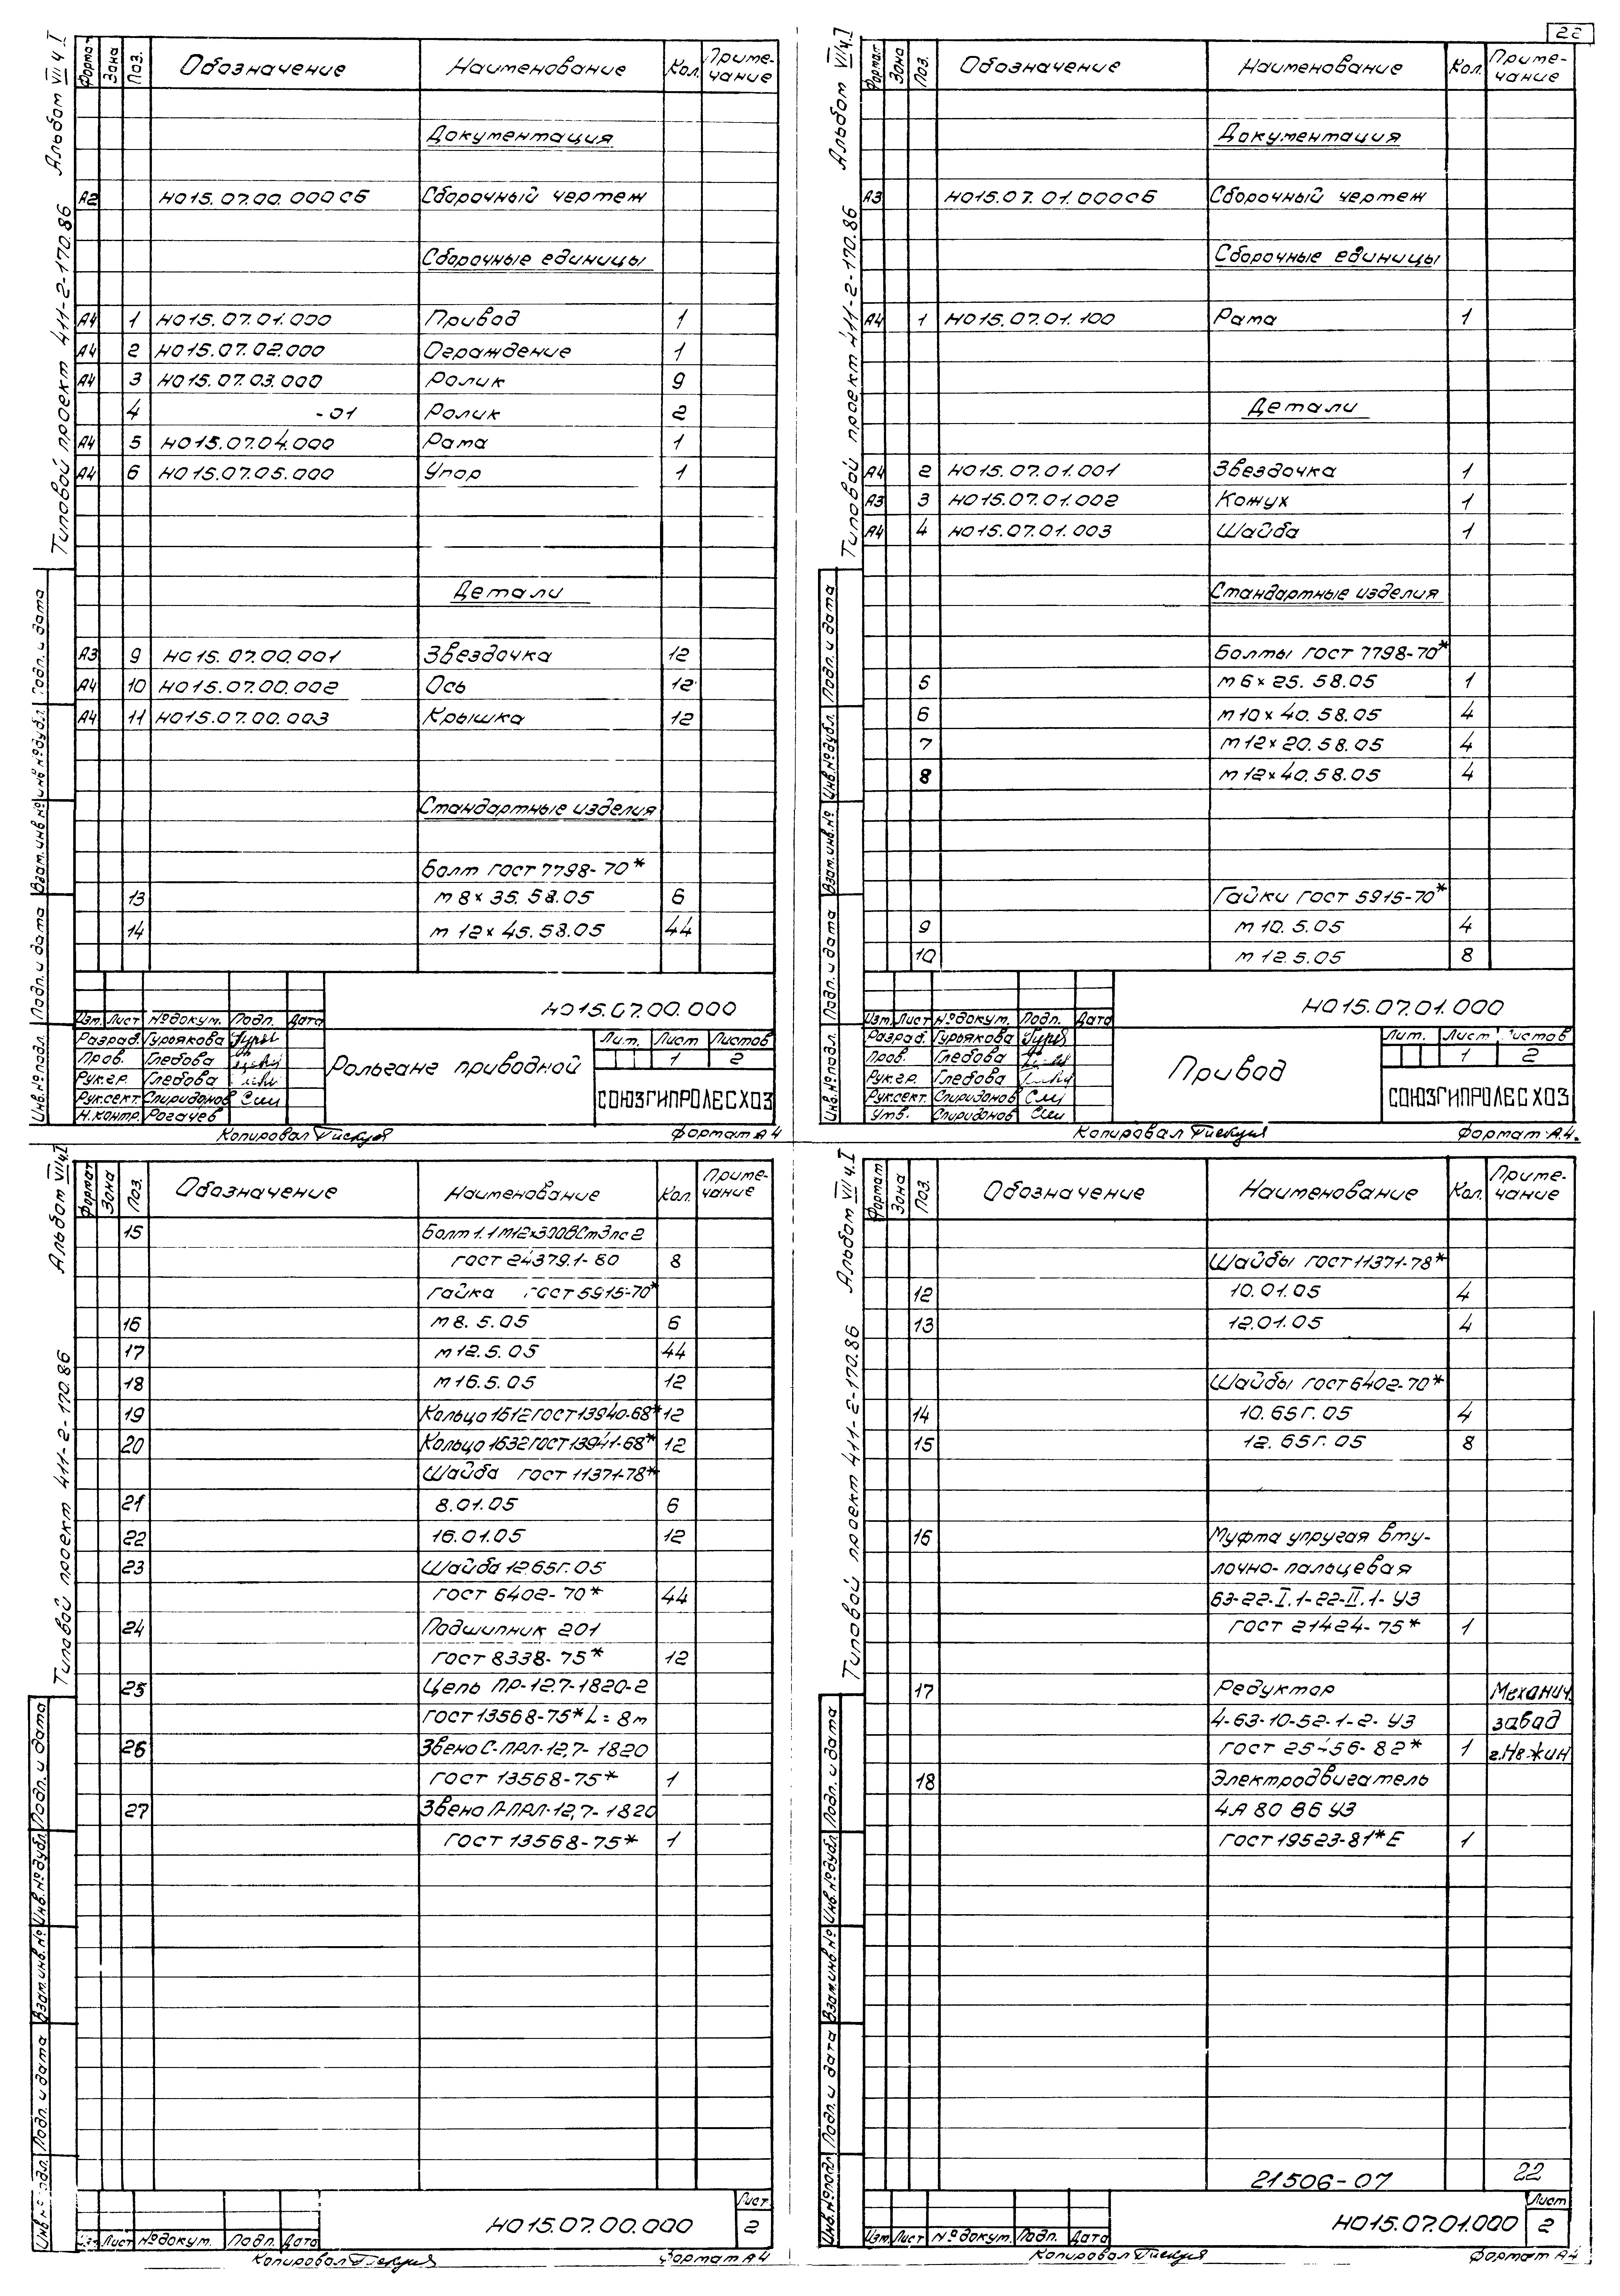 22
Альбом VII ч.I
Типовой проект 411-2-170.86
Формат Зона Поз. Обозначение Наименование Кол. Приме-
чание
Документация
А2 НО15.07.00.000СБ Сборочный чертеж
Сборочные единицы
А4 1 НО15.07.01.000 Привод 1
А4 2 НО15.07.02.000 Ограждение 1
А4 3 НО15.07.03.000 Ролик 9
4 -01 Ролик 2
А4 5 НО15.07.04.000 Рама 1
А4 6 НО15.07.05.000 Упор 1
Детали
А3 9 НО15.07.00.001 Звездочка 12
А4 10 НО15.07.00.002 Ось 12
А4 11 НО15.07.00.003 Крышка 12
Стандартные изделия
Болт ГОСТ 7798-70*
13 М8×35.58.05 6
14 М12×45.58.05 44
Инв.№подл. Подп. и дата Взам.инв.№ Инв.№дубл. Подп. и дата
НО15.07.00.000
Изм. Лист №докум. Подп. Дата
Разраб. Гурьякова
Пров. Глебова
Рук.гр. Глебова
Рук.сект. Спиридонов
Н.контр. Рогачев
Рольганг приводной
Лит. Лист Листов
1 2
СОЮЗГИПРОЛЕСХОЗ
Копировал
Формат А4
Альбом VII ч.I
Типовой проект 411-2-170.86
Формат Зона Поз. Обозначение Наименование Кол. Приме-
чание
Документация
А3 НО15.07.01.000СБ Сборочный чертеж
Сборочные единицы
А4 1 НО15.07.01.100 Рама 1
Детали
А4 2 НО15.07.01.001 Звездочка 1
А3 3 НО15.07.01.002 Кожух 1
А4 4 НО15.07.01.003 Шайба 1
Стандартные изделия
Болты ГОСТ 7798-70*
5 М6×25.58.05 1
6 М10×40.58.05 4
7 М12×20.58.05 4
8 М12×40.58.05 4
Гайки ГОСТ 5915-70*
9 М10.5.05 4
10 М12.5.05 8
Инв.№подл. Подп. и дата Взам.инв.№ Инв.№дубл. Подп. и дата
НО15.07.01.000
Изм. Лист №докум. Подп. Дата
Разраб. Гурьякова
Пров. Глебова
Рук.гр. Глебова
Рук.сект. Спиридонов
Утв. Спиридонов
Привод
Лит. Лист Листов
1 2
СОЮЗГИПРОЛЕСХОЗ
Копировал
Формат А4.
Альбом VII ч.I
Типовой проект 411-2-170.86
Формат Зона Поз. Обозначение Наименование Кол. Приме-
чание
15 Болт 1.1М12×300ВСт3пс2
ГОСТ 24379.1-80 8
Гайка ГОСТ 5915-70*
16 М8.5.05 6
17 М12.5.05 44
18 М16.5.05 12
19 Кольцо 1612 ГОСТ 13940-68* 12
20 Кольцо 1632 ГОСТ 13941-68* 12
Шайба ГОСТ 11371-78*
21 8.01.05 6
22 16.01.05 12
23 Шайба 12.65Г.05
ГОСТ 6402-70* 44
24 Подшипник 201
ГОСТ 8338-75* 12
25 Цепь ПР-12.7-1820-2
ГОСТ 13568-75* L=8м
26 Звено С-ПРЛ-12,7-1820
ГОСТ 13568-75* 1
27 Звено П-ПРЛ-12,7-1820
ГОСТ 13568-75* 1
Инв.№подл. Подп. и дата Взам.инв.№ Инв.№дубл. Подп. и дата
Изм. Лист №докум. Подп. Дата
НО15.07.00.000
Лист
2
Копировал
Формат А4
Альбом VII ч.I
Типовой проект 411-2-170.86
Формат Зона Поз. Обозначение Наименование Кол. Приме-
чание
Шайбы ГОСТ 11371-78*
12 10.01.05 4
13 12.01.05 4
Шайбы ГОСТ 6402-70*
14 10.65Г.05 4
15 12.65Г.05 8
16 Муфта упругая вту-
лочно-пальцевая
63-22-I.1-22-II.1-У3
ГОСТ 21424-75* 1
17 Редуктор Механич.
4-63-10-52-1-2-У3 завод
ГОСТ 25456-82* 1 г.Нежин
18 Электродвигатель
4А 80 В6 У3
ГОСТ 19523-81*Е 1
21506-07 22
Инв.№подл. Подп. и дата Взам.инв.№ Инв.№дубл. Подп. и дата
Изм. Лист №докум. Подп. Дата
НО15.07.01.000
Лист
2
Копировал
Формат А4